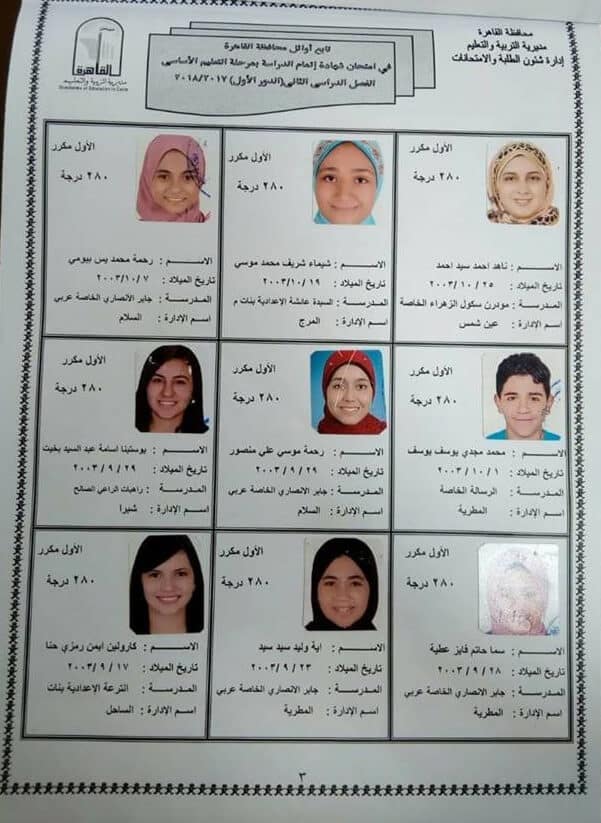 محافظة القاهرة
مديرية التربية والتعليم
إدارة شئون الطلبة والامتحانات
تابع أوائل محافظة القاهرة
في امتحان شهادة إتمام الدراسة بمرحلة التعليم الأساسى
الفصل الدراسى الثانى(الدور الأول) ٢٠١٨/٢٠١٧
القاهرة
مديرية التربية والتعليم
Directorate of Education in Cairo
الأول مكرر
٢٨٠ درجة
الاســــم : ناهد احمد سيد احمد
تاريخ الميلاد : ٢٥ / ١٠ / ٢٠٠٣
المدرســـة : مودرن سكول الزهراء الخاصة
اسـم الإدارة : عين شمس
الأول مكرر
٢٨٠ درجة
الاســــم : شيماء شريف محمد موسي
تاريخ الميلاد : ١٩ / ١٠/ ٢٠٠٣
المدرســـة : السيدة عائشة الإعدادية بنات م
اسـم الإدارة : المرج
الأول مكرر
٢٨٠ درجة
الاســــم : رحمة محمد يس بيومي
تاريخ الميلاد : ٧ / ١٠/ ٢٠٠٣
المدرســـة : جابر الانصاري الخاصة عربي
اسـم الإدارة : السلام
الأول مكرر
٢٨٠ درجة
الاســــم : محمد مجدي يوسف يوسف
تاريخ الميلاد : ١ / ١٠ / ٢٠٠٣
المدرســـة : الرسالة الخاصة
اسـم الإدارة : المطرية
الأول مكرر
٢٨٠ درجة
الاســــم : رحمة موسي علي منصور
تاريخ الميلاد : ٢٩ / ٩ / ٢٠٠٣
المدرســـة : جابر الانصاري الخاصة عربي
اسـم الإدارة : السلام
الأول مكرر
٢٨٠ درجة
الاســــم : يوستينا اسامة عبد السيد بخيت
تاريخ الميلاد : ٢٩ / ٩ / ٢٠٠٣
المدرســـة : راهبات الراعي الصالح
اسـم الإدارة : شبرا
الأول مكرر
٢٨٠ درجة
الاســــم : سما حاتم فايز عطية
تاريخ الميلاد : ٢٨ / ٩ / ٢٠٠٣
المدرســـة : جابر الانصاري الخاصة عربي
اسـم الإدارة : المطرية
الأول مكرر
٢٨٠ درجة
الاســــم : اية وليد سيد سيد
تاريخ الميلاد : ٢٣ / ٩ / ٢٠٠٣
المدرســـة : جابر الانصاري الخاصة عربي
اسـم الإدارة : المطرية
الأول مكرر
٢٨٠ درجة
الاســــم : كارولين ايمن رمزي حنا
تاريخ الميلاد : ١٧ / ٩ / ٢٠٠٣
المدرســـة : الترعة الإعدادية بنات
اسـم الإدارة : الساحل
٣